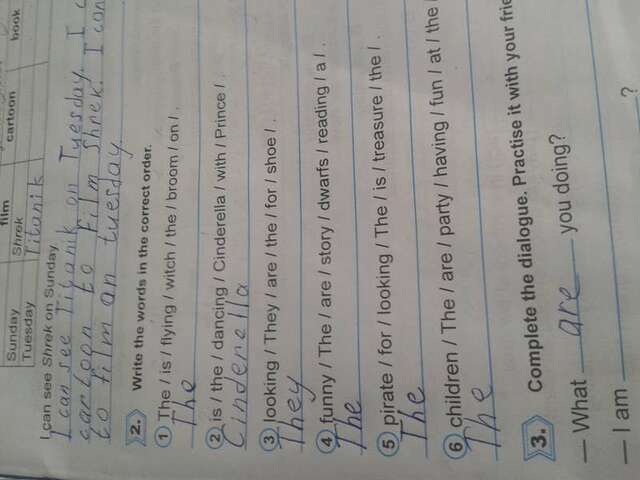 film cartoon book
Sunday Shrek
Tuesday Titanik
I can see Shrek on Sunday.
I can see Titanik on Tuesday. I c
cartoon to film Shrek. I can
to film an tuesday.
2. Write the words in the correct order.
1 The / is / flying / witch / the / broom / on / .
The
2 is / the / dancing / Cinderella / with / Prince / .
Cinderella
3 looking / They / are / the / for / shoe / .
They
4 funny / The / are / story / dwarfs / reading / a / .
The
5 pirate / for / looking / The / is / treasure / the / .
The
6 children / The / are / party / having / fun / at / the /
The
3. Complete the dialogue. Practise it with your frie
— What are you doing?
— I am
?